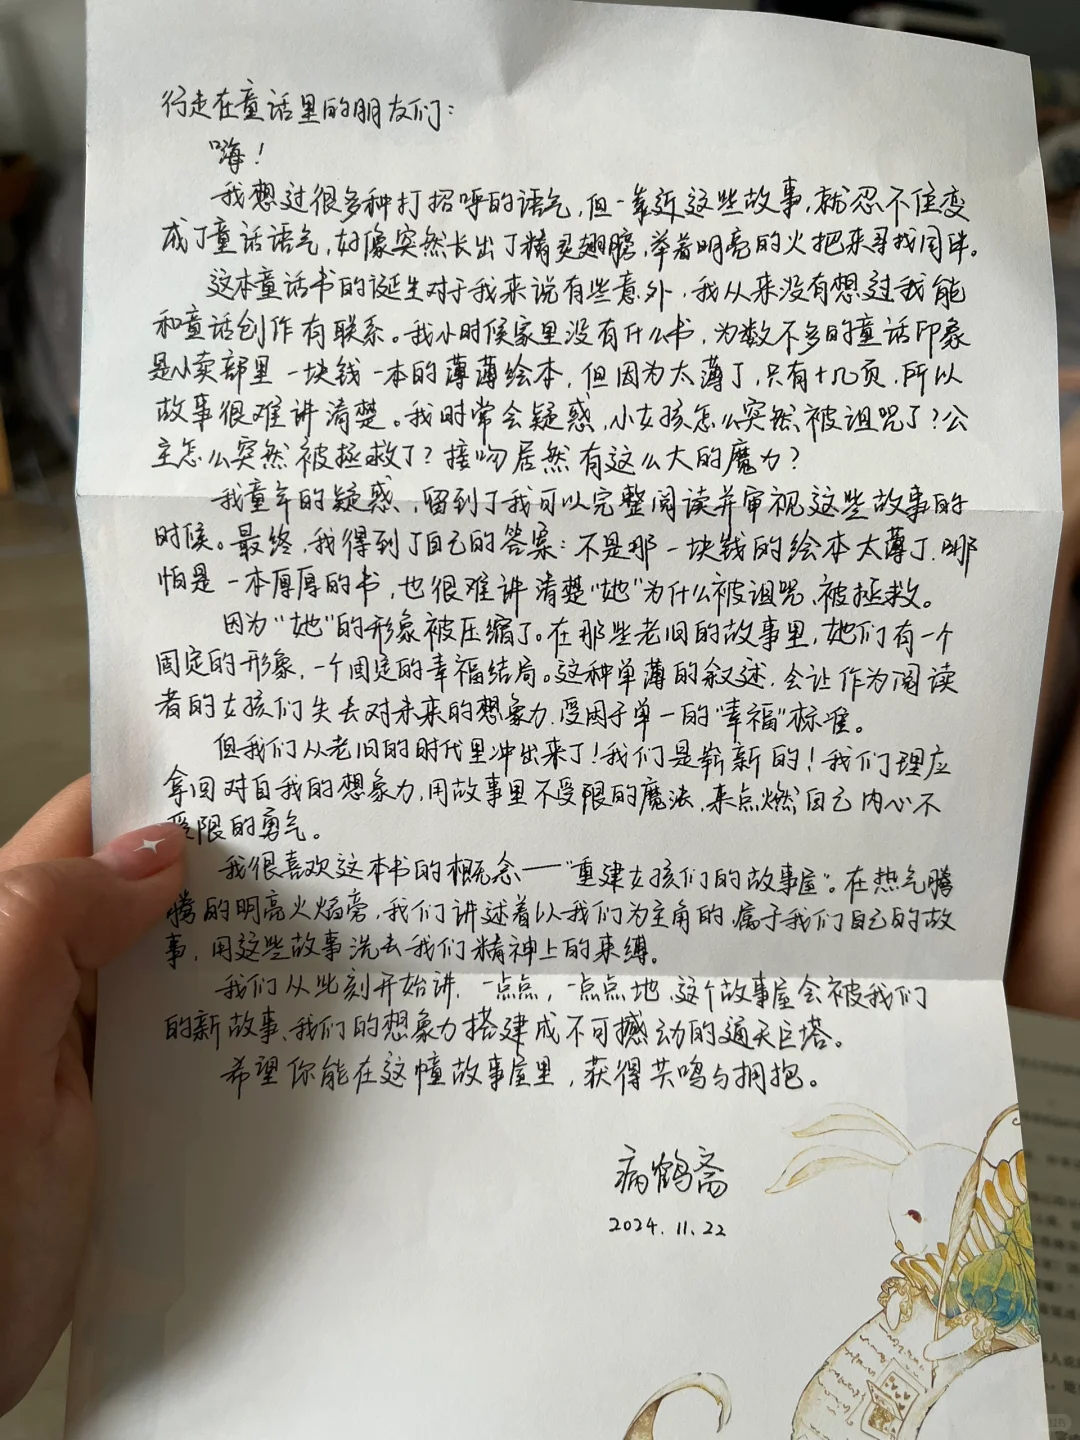 行走在童话里的朋友们：
嗨！
我想过很多种打招呼的语气，但一靠近这些故事，就忍不住变
成了童话语气，好像突然长出了精灵翅膀，举着明亮的火把来寻找同伴。
这本童话书的诞生对于我来说有些意外，我从来没有想过我能
和童话创作有联系。我小时候家里没有什么书，为数不多的童话印象
是小卖部里一块钱一本的薄薄绘本，但因为太薄了，只有十几页，所以
故事很难讲清楚。我时常会疑惑，小女孩怎么突然被诅咒了？公
主怎么突然被拯救了？接吻居然有这么大的魔力？
我童年的疑惑，留到了我可以完整阅读并审视这些故事的
时候。最终，我得到了自己的答案：不是那一块钱的绘本太薄了，哪
怕是一本厚厚的书，也很难讲清楚“她”为什么被诅咒、被拯救。
因为“她”的形象被压缩了。在那些老旧的故事里，她们有一个
固定的形象，一个固定的幸福结局。这种单薄的叙述，会让作为阅读
者的女孩们失去对未来的想象力，受困于单一的“幸福”标准。
但我们从老旧的时代里冲出来了！我们是崭新的！我们理应
拿回对自我的想象力，用故事里不受限的魔法，来点燃自己内心不
受限的勇气。
我很喜欢这本书的概念——“重建女孩们的故事屋”。在热气腾
腾的明亮火焰旁，我们讲述着以我们为主角的、属于我们自己的故
事，用这些故事洗去我们精神上的束缚。
我们从此刻开始讲，一点点，一点点地，这个故事屋会被我们
的新故事、我们的想象力搭建成不可撼动的通天巨塔。
希望你能在这幢故事屋里，获得共鸣与拥抱。
病鹤斋
2024.11.22